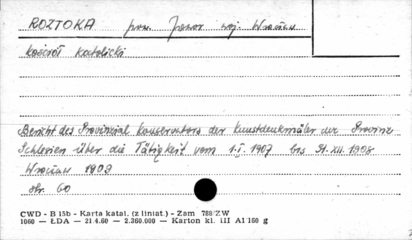 ROZTOKA pow. Jawor woj. Wrocław
kościół katolicki
Bericht des Provinzial Konservators der Kunstdenkmäler der Provinz
Schlesien über die Tätigkeit vom 1.I.1907 bis 31.XII.1908
Wrocław 1909
str. 60
CWD - B 15b - Karta katal. (z liniat.) - Zam 788/ZW
1060 — ŁDA — 21.4.60 — 2.360.000 — Karton kl. III A1 160 g